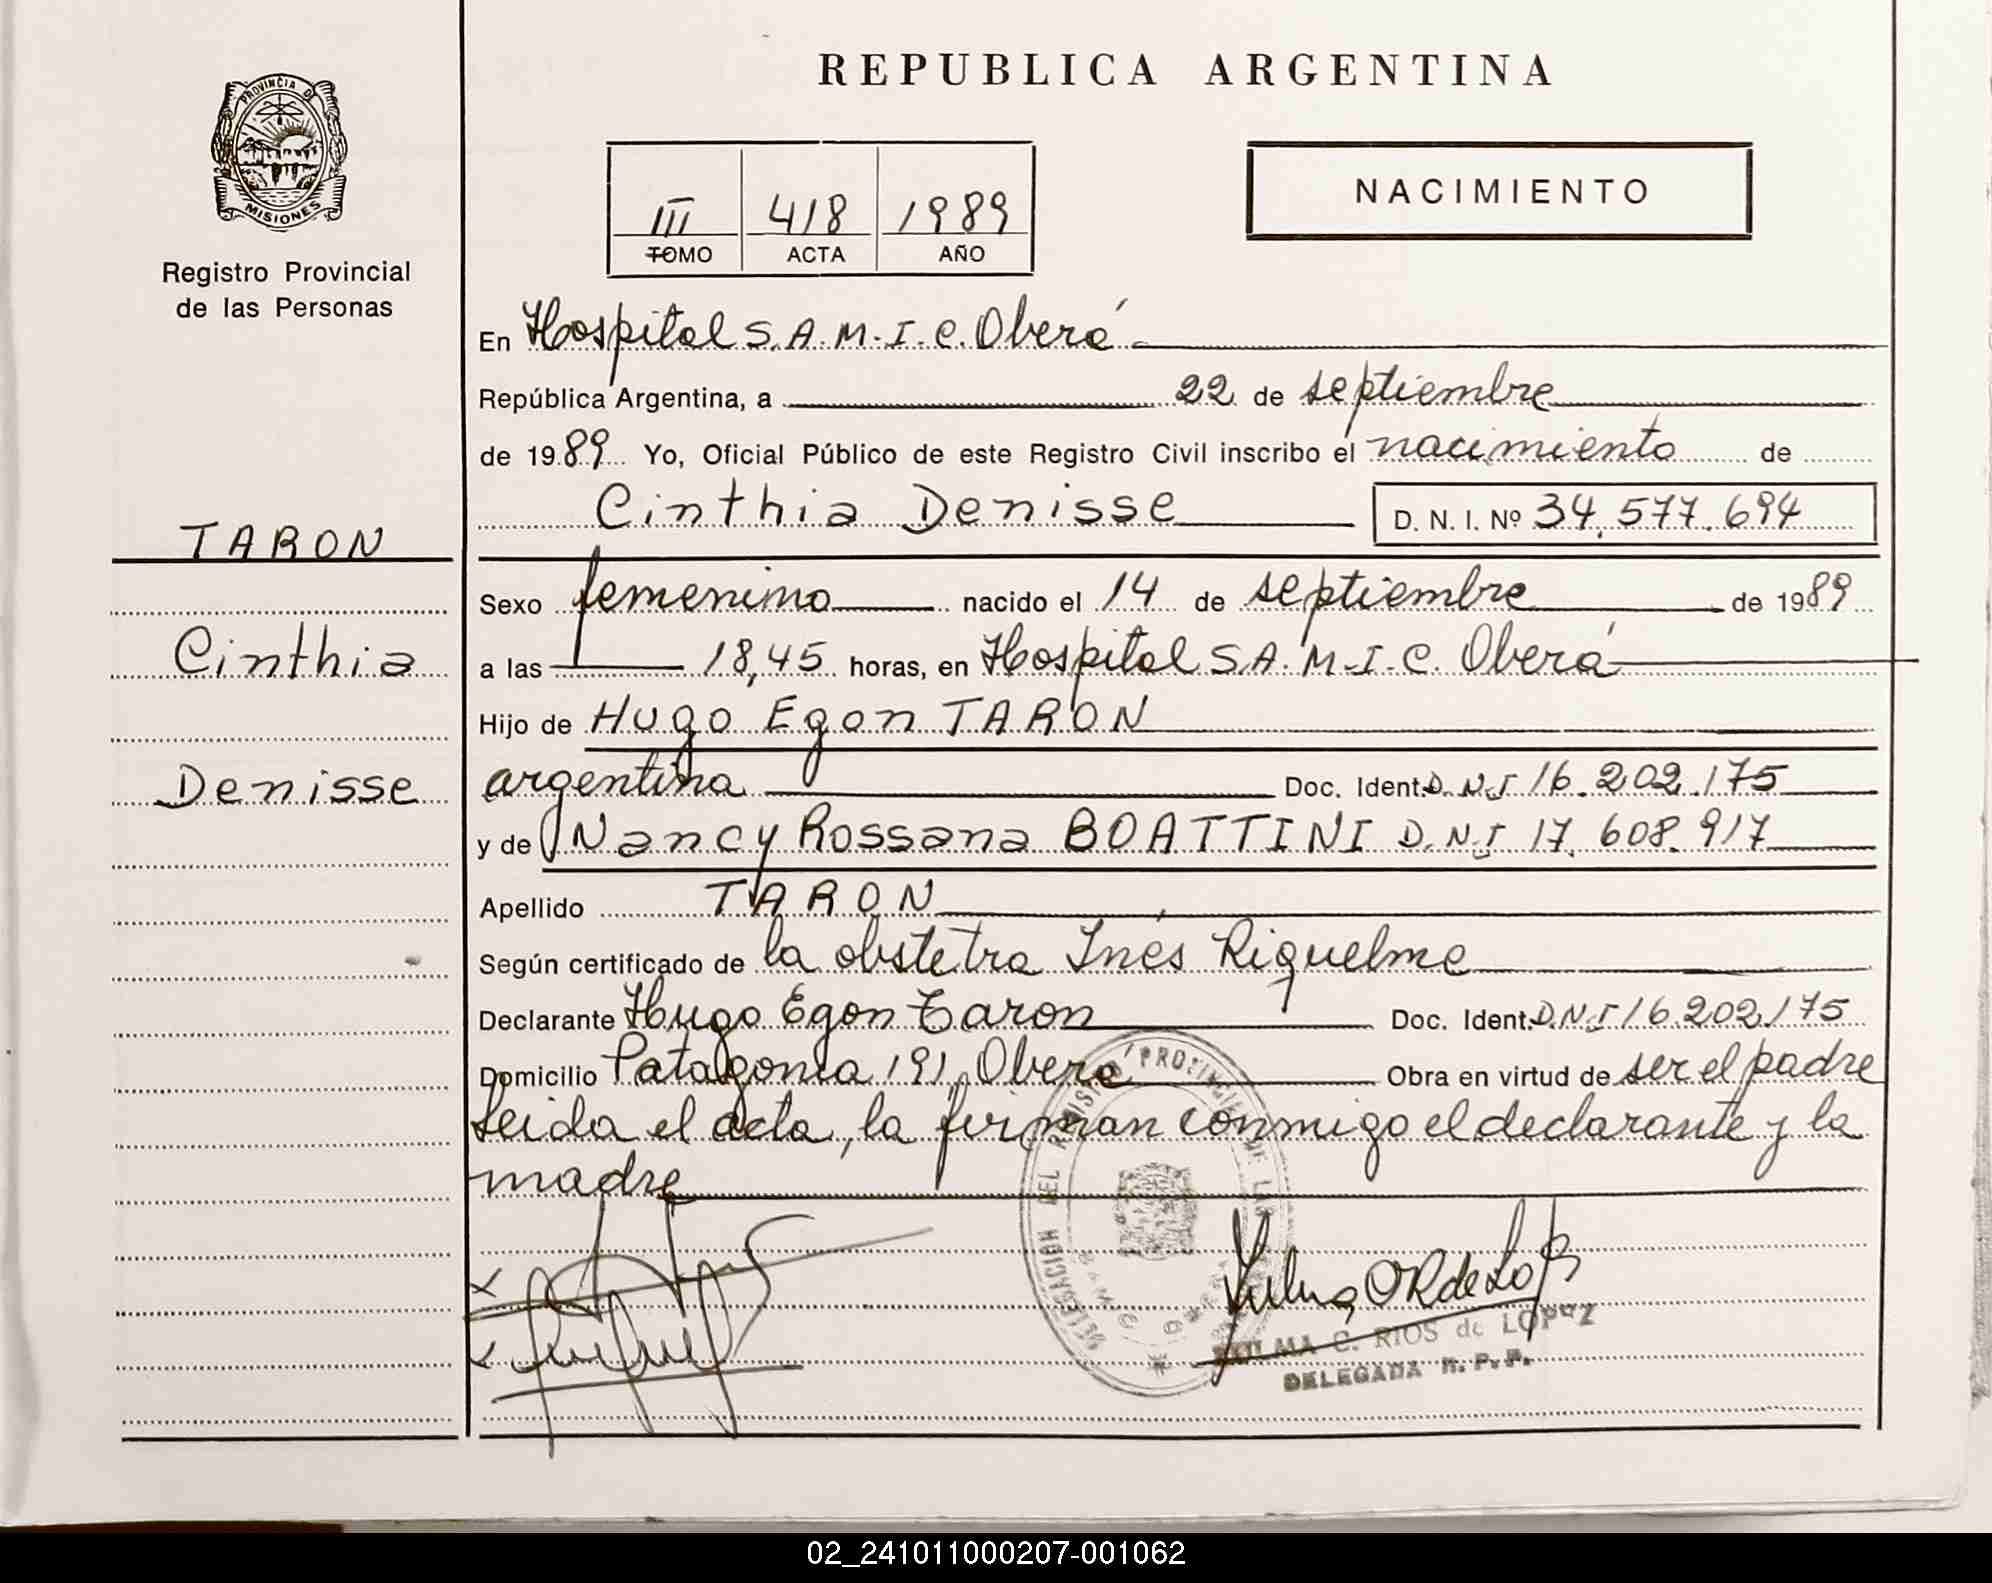 REPUBLICA ARGENTINA
PROVINCIA DE
MISIONES
Registro Provincial
de las Personas
III 418 1989
TOMO ACTA AÑO
NACIMIENTO
En Hospital S.A.M.I.C. Oberá
República Argentina, a 22 de septiembre
de 1989 Yo, Oficial Público de este Registro Civil inscribo el nacimiento de
Cinthia Denisse D. N. I. Nº 34.577.694
TARON
Cinthia
Denisse
Sexo femenino nacido el 14 de septiembre de 1989
a las 18,45 horas, en Hospital S.A.M.I.C. Oberá
Hijo de Hugo Egon TARON
argentina Doc. Ident. D.N.I 16.202.175
y de Nancy Rossana BOATTINI D.N.I 17.608.917
Apellido TARON
Según certificado de la obstetra Inés Riquelme
Declarante Hugo Egon Taron Doc. Ident. D.N.I 16.202.175
Domicilio Patagonia 191 Oberá Obra en virtud de ser el padre
Leida el acta, la firman conmigo el declarante y la
madre
DELEGACION DEL REGISTRO PROVINCIAL DE LAS
C. RIOS de LOPEZ
DELEGADA R. P. P.
02_241011000207-001062